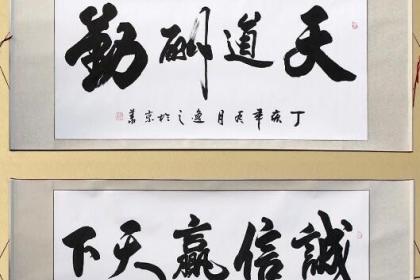 天道酬勤
丁亥年月逸之於京華
誠信贏天下